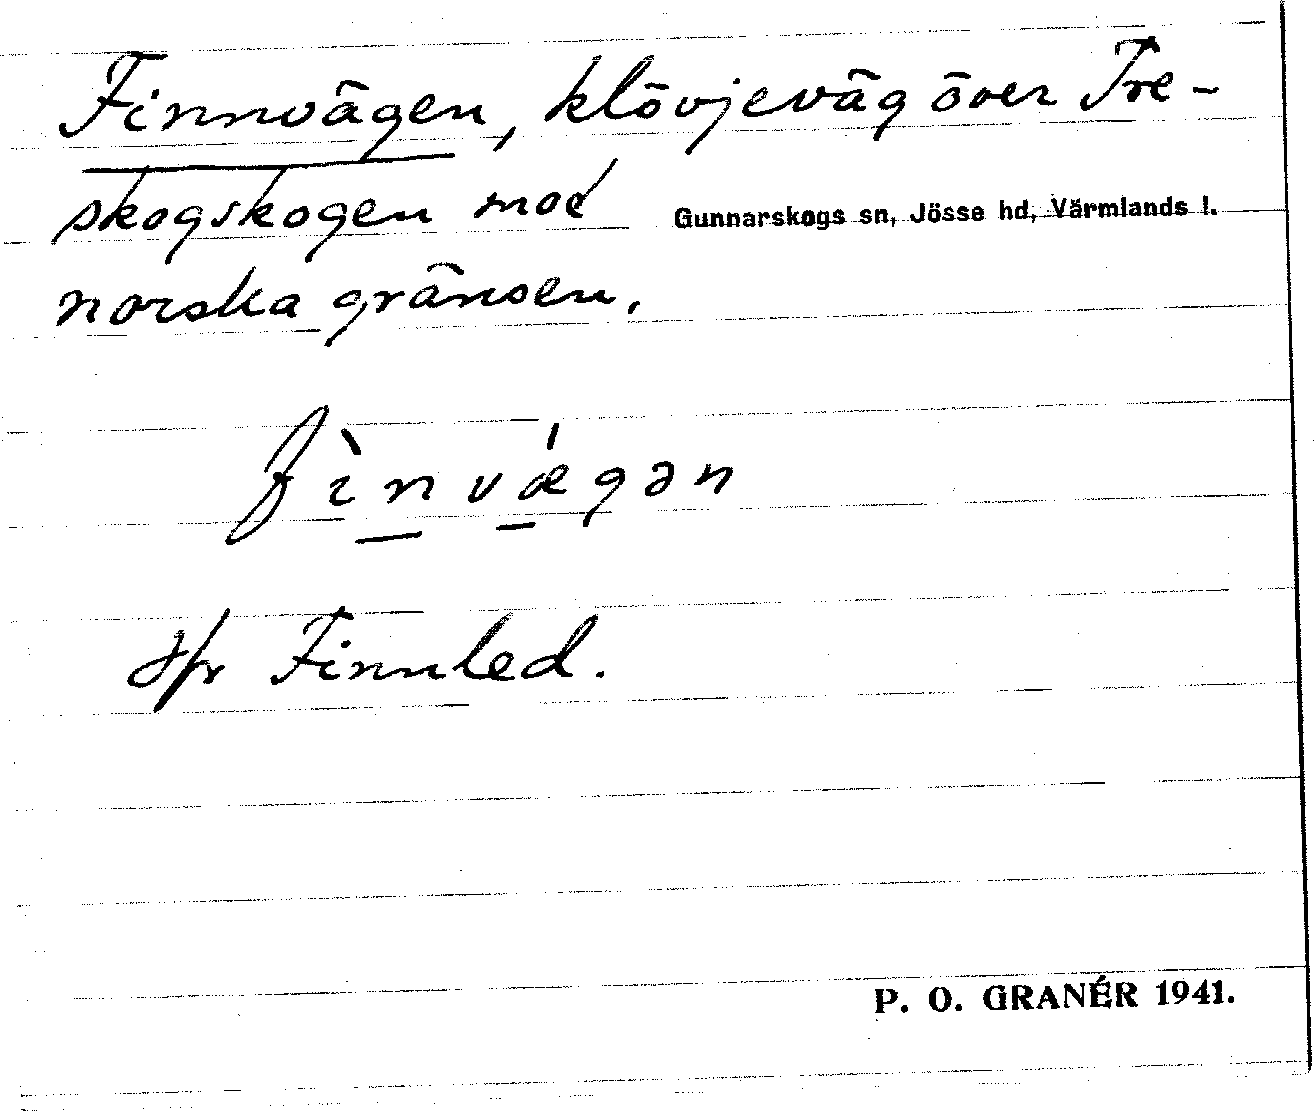 Finnvägen, klövjeväg över Tre-
skogskogen mod
Gunnarskogs sn, Jösse hd, Värmlands l.
norska gränsen.
fìnvǽgən
Jfr Finnled.
P. O. GRANÉR 1941.